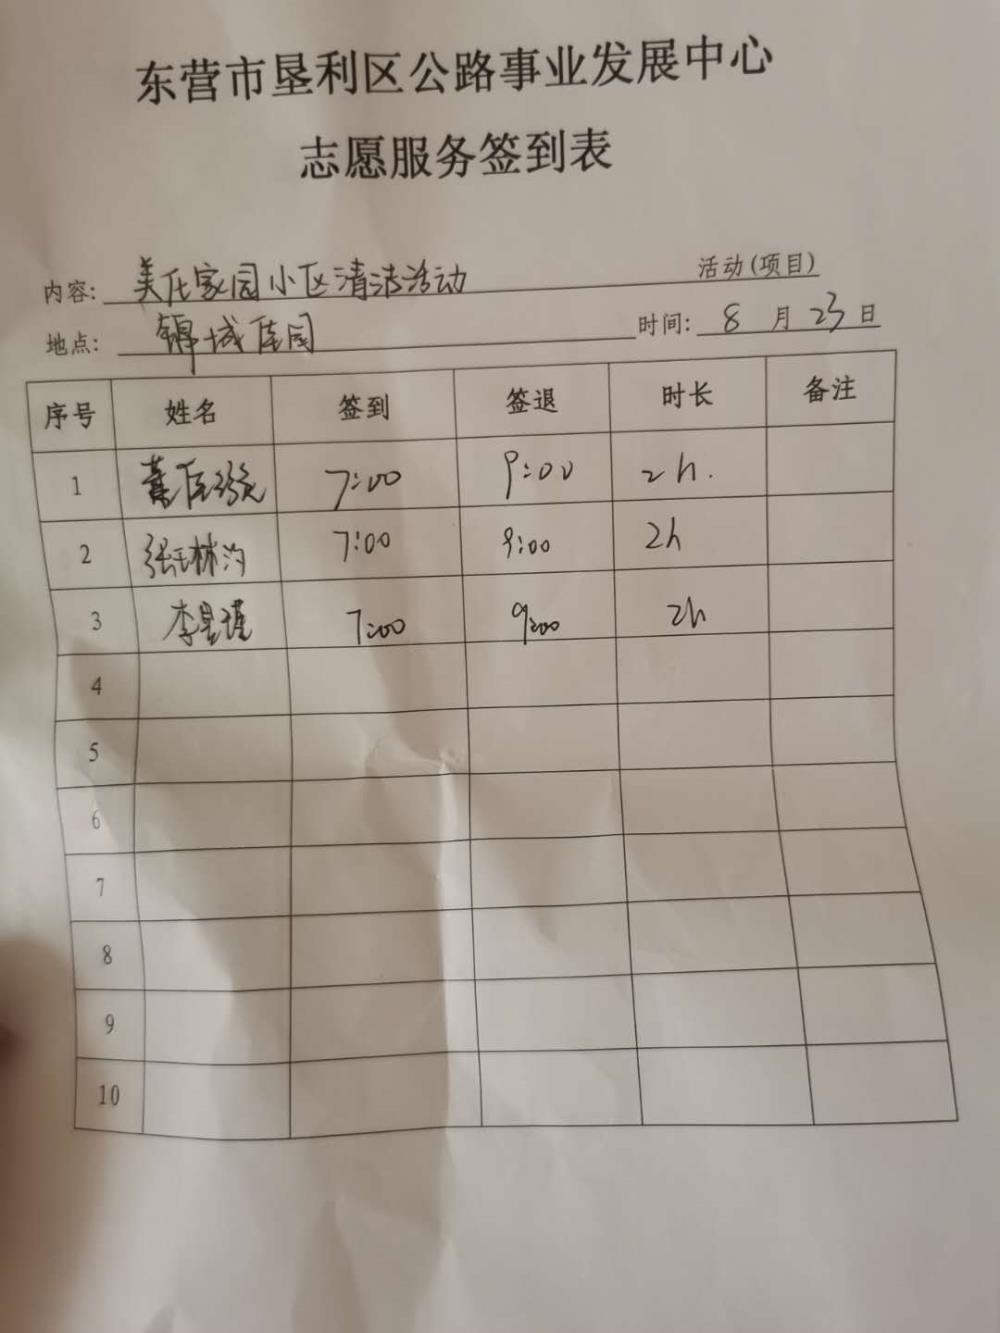 东营市垦利区公路事业发展中心
志愿服务签到表
内容: 美在家园小区清洁活动 活动(项目)
地点: 锦城佳园 时间: 8 月 23 日
序号 姓名 签到 签退 时长 备注
1 7:00 9:00 2h.
2 张 林 7:00 9:00 2h
3 李 瑾 7:00 9:00 2h
4
5
6
7
8
9
10